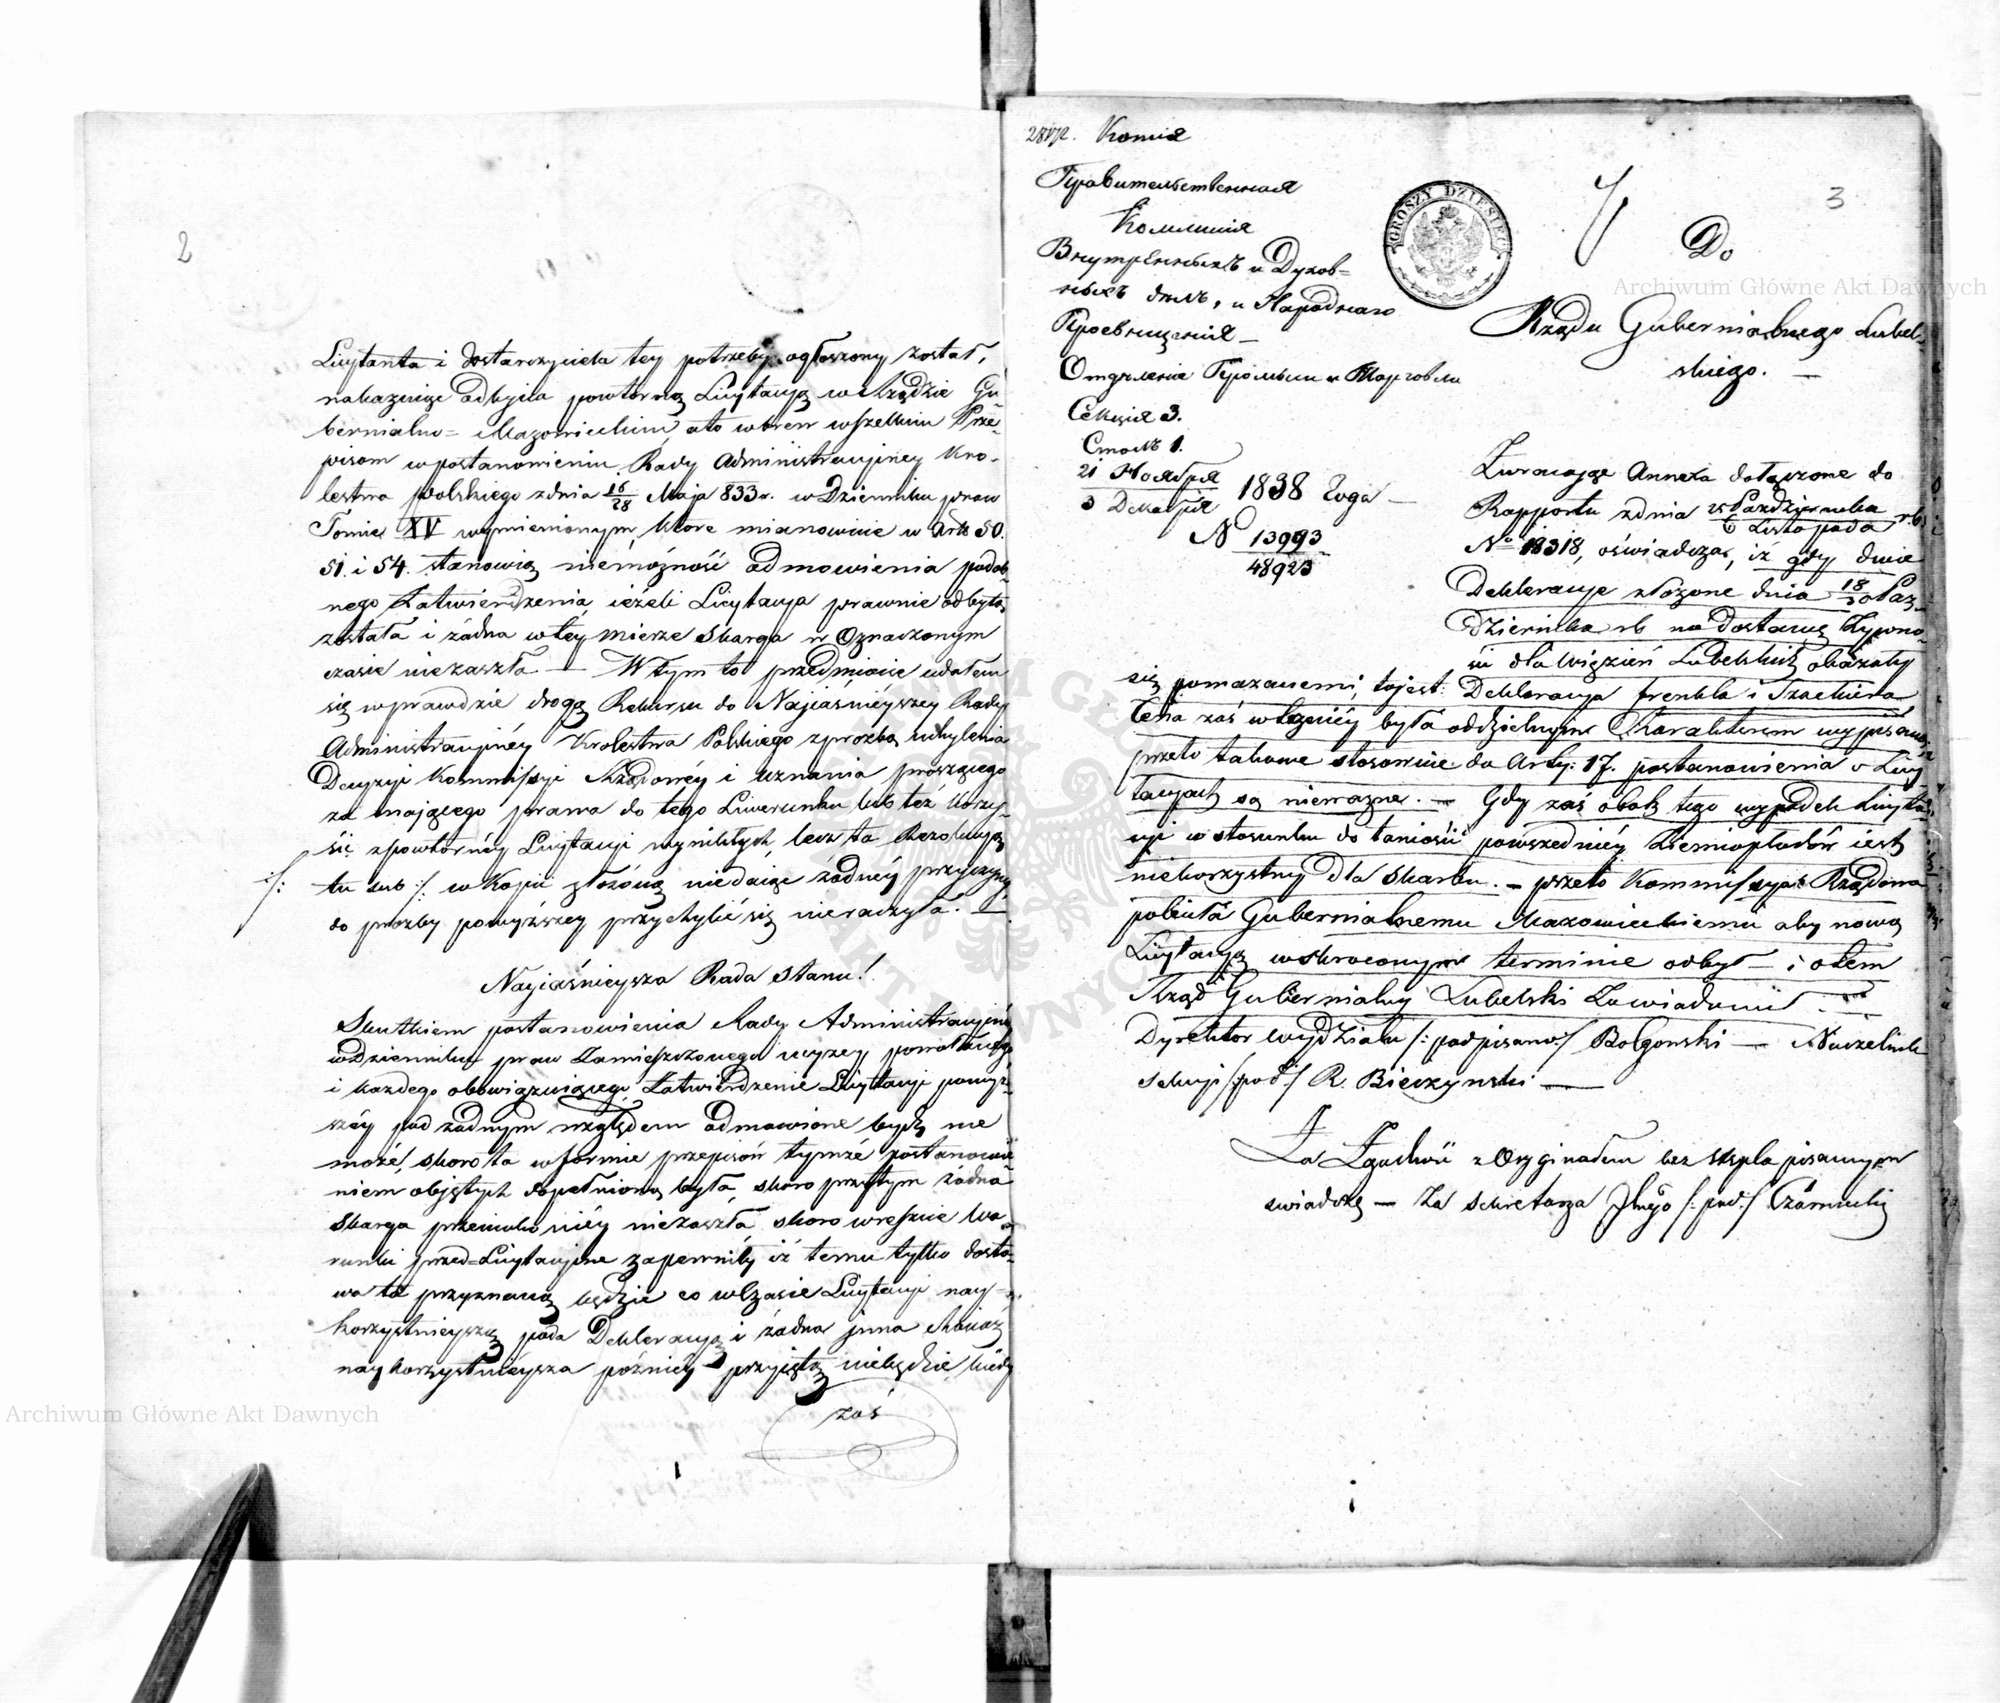 2
Licytanta i dostarczyciela tey potrzeby ogłoszony został,
nakazuiąc odbycia powtórną Licytacyą w Rządzie Gu-
bernialno= Mazowieckim, a to wbrew wszelkim Prze-
pisom w postanowieniu Rady Administracyiney Kro-
lestwa Polskiego z dnia 16/28 Maja 833 r. w Dzienniku praw
Tomie XV wymienionym, które mianowicie w Artt 50.
51. i 54. stanowią niemożność odmowienia podob-
nego Zatwierdzenia, ieżeli Licytacya prawnie odbytą
została i żadna w tey mierze skarga w Oznaczonym
czasie nie zaszła — W tym to przedmiocie udałem
się wprawdzie drogą Rekursu do Najiaśnieyszey Rady
Administracyinéy Królestwa Polskiego z prozbą uchylenia
Decyzyi Kommissyi Rządowéy i uznania proszącego
za maiącego prawa do tego Liwerunku lub też korzy-
ści z powtórnéy Licytacyi wynikłych, lecz ta Rezolucyą
:/: tu sub :/: w Kopii złożoną nie daiąc żadnéy przyczyny
do prozby powyższey przychylić się nie raczyła. —
Nayiaśnieysza Rada Stanu!
Skutkiem postanowienia Rady Administracyiney
w dzienniku praw Zamieszczonego wyzey powołanego
i każdego obowiązuiącego, Zatwierdzenie Licytacyi powyż-
széy pod żadnym względem odmowione bydź nie
może, skoro ta w formie przepisów tymże postanowie-
niem obiętych dopełnioną była, skoro przytym żadna
skarga przeciwko niéy nie zaszła, skoro wreszcie Wa-
runki przed=Licytacyine zapewniły iż temu tylko dosta-
wa ta przyznaną będzie co w czasie Licytacyi nay-
korzystnieyszą poda Deklaracyą i żadna inna chociaż
naykorzystnieysza późniéy przyiętą nie będzie, kiedy
zaś
28 Wp. Копия
3
Правительственная
Коммисія
Внутреннихъ и Духов=
ныхъ дѣлъ, и Народнаго
Просвѣщенія —
Отдѣленіе Промысл и Торговли
Секція 3.
Столъ 1.
21 Ноября
3 Декабря 1838 Года —
N 13993
48923
GROSZY DZIESIĘĆ
Do
Rządu Gubernialnego Lubel-
skiego. —
Zwracając Annexa dołączone do
Rapportu z dnia 25 Października / 6 Listopada r. b.
No 18318, oświadcza, iż gdy dwie
Deklaracye złożone dnia 18/30 Paz-
dziernika r b na dostawę Żywno-
ści dla więzień Lubelskich okazały
się pomazanemi, toiest: Deklaracya Frenkla i Szachiera
Cena zaś w tegniéy była oddzielnym Charakterem wypisana
przeto takowe stosownie do Arty: 17. postanowienia o Licy
tacyach są nieważne. — Gdy zaś obok tego wypadek Licyta-
cyi w stosunku do taniości powszedniéy Ziemiopłodów iest
niekorzystny dla Skarbu. — przeto Kommissya Rządowa
poleciła Gubernialnemu Mazowieckiemu aby nową
Licytacyą w skroconym terminie odbył — i o tem
Rząd Gubernialny Lubelski Zawiadomił —
Dyrektor Wydziału /: podpisano :/ Bolgonski — Naczelnik
Sekcyi /: pod :/ R. Bieczynski —
Za Zgodność z Oryginałem bez stepla pisanym
swiadczę — Za Sekretarza Jlnego /: pod :/ Czarnecki
Archiwum Główne Akt Dawnych
Archiwum Główne Akt Dawnych